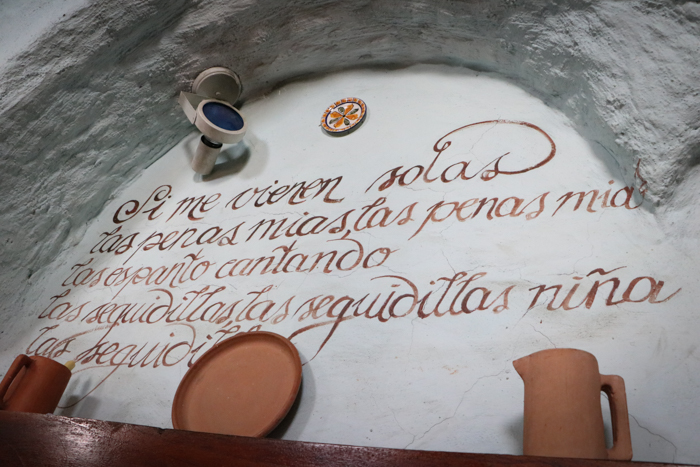 Si me vieren solas
las penas mias, las penas mias
las espanto cantando
las seguidillas las seguidillas niña
las seguidill